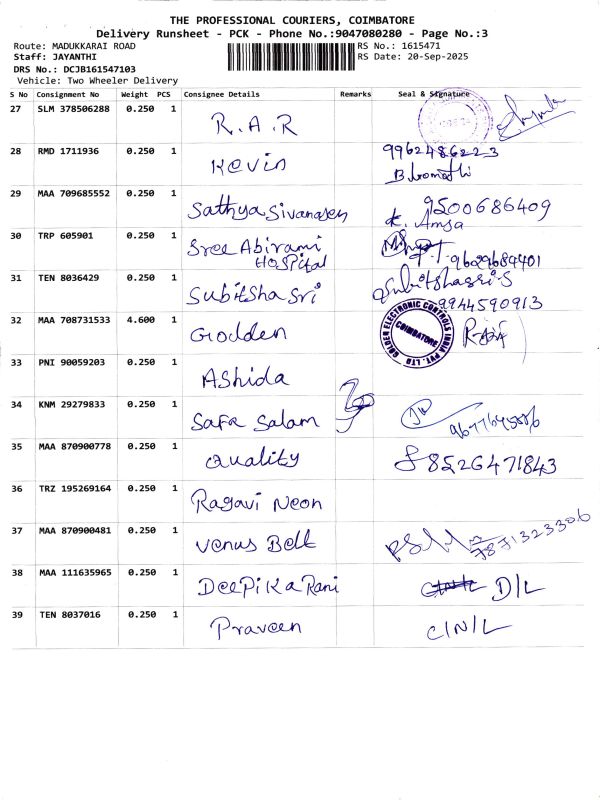 THE PROFESSIONAL COURIERS, COIMBATORE
Delivery Runsheet - PCK - Phone No.:9047080280 - Page No.:3
Route: MADUKKARAI ROAD RS No.: 1615471
Staff: JAYANTHI RS Date: 20-Sep-2025
DRS No.: DCJB161547103
Vehicle: Two Wheeler Delivery
S No Consignment No Weight PCS Consignee Details Remarks Seal & Signature
27 SLM 378506288 0.250 1 R.A.R
28 RMD 1711936 0.250 1 Kevin 9962486223
29 MAA 709685552 0.250 1 Sathya Sivanasen 9500686409
K. Amsa
30 TRP 605901 0.250 1 Sree Abirami
Hospital 9629689401
31 TEN 8036429 0.250 1 Subitsha Sri Subitshasri.S
9944590913
32 MAA 708731533 4.600 1 Godden GOLDEN ELECTRONIC CONTROLS INDIA PVT. LTD COIMBATORE
33 PNI 90059203 0.250 1 Ashida
34 KNM 29279833 0.250 1 Safa Salam
35 MAA 870900778 0.250 1 Quality 8526471843
36 TRZ 195269164 0.250 1 Ragavi Neon
37 MAA 870900481 0.250 1 Venus Belt 7871323306
38 MAA 111635965 0.250 1 DeePika Rani D/L
39 TEN 8037016 0.250 1 Praveen C/N/L